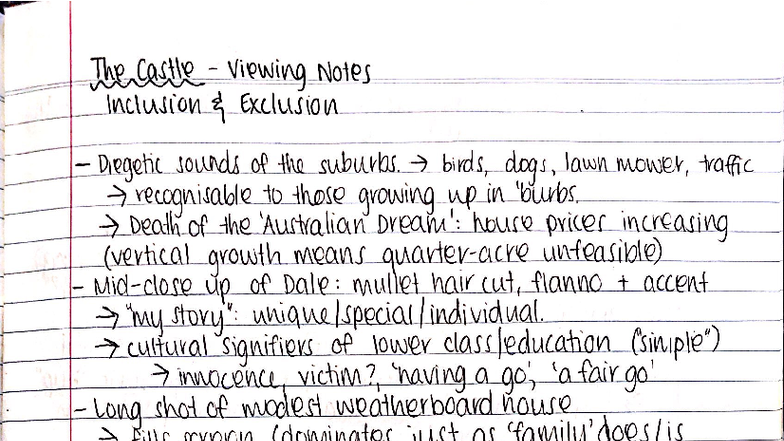 The Castle - Viewing Notes
Inclusion & Exclusion
- Diegetic sounds of the suburbs. → birds, dogs, lawn mower, traffic
→ recognisable to those growing up in 'burbs.
→ Death of the 'Australian Dream': house prices increasing
(vertical growth means quarter-acre unfeasible)
- Mid-close up of Dale: mullet hair cut, flanno + accent
→ "my story": unique/special/individual.
→ cultural signifiers of lower class/education ("simple")
→ innocence, victim?, 'having a go', 'a fair go'
- Long shot of modest weatherboard house
→ fills screen (dominates just as 'family' does/is